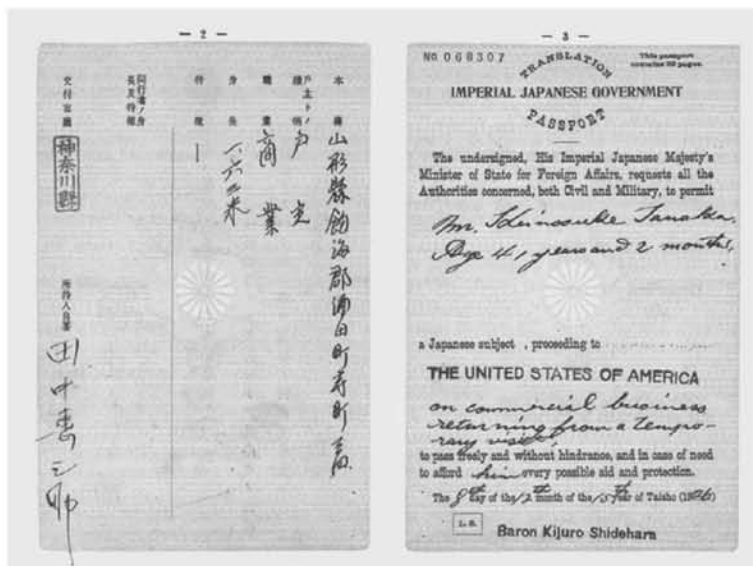 — 2 —
本籍
山形縣飽海郡酒田町寿町
戸主トノ續柄
戸主
職業
商業
身長
一六二米
特徴
一
同行者ノ身長及特徴
交付官廳
神奈川縣
所持人自署
田中
— 3 —
No 068307
This passport contains 32 pages.
TRANSLATION
IMPERIAL JAPANESE GOVERNMENT
PASSPORT
The undersigned, His Imperial Japanese Majesty's
Minister of State for Foreign Affairs, requests all the
Authorities concerned, both Civil and Military, to permit
Mr. Tanaka
Age 41 years and 2 months,
a Japanese subject , proceeding to
THE UNITED STATES OF AMERICA
on commercial business
returning from a tempo-
rary visit,
to pass freely and without hindrance, and in case of need
to afford him every possible aid and protection.
The 8th day of the 12th month of the 15th year of Taisho (1926)
L. S.
Baron Kijuro Shidehara